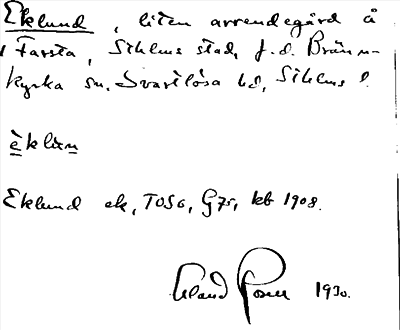 Eklund, liten arrendegård å
Farsta, Sthlms stad, f.d. Bränn-
kyrka sn, Svartlösa hd, Sthlms l.
èklun
Eklund ek, TOSG, G75, kb 1908.
1930.